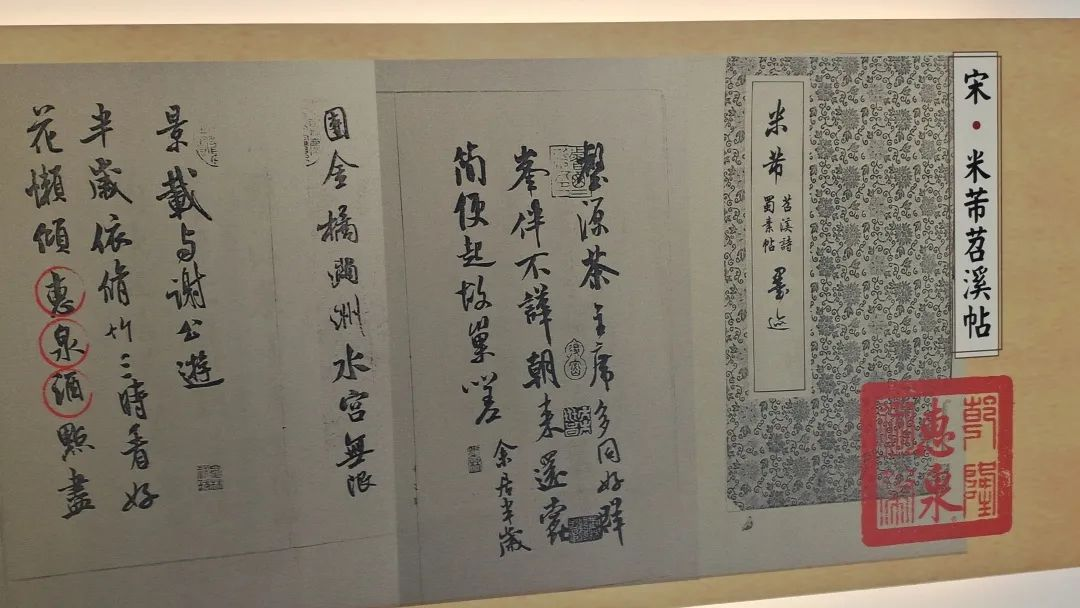 宋·米芾苕溪帖
乾隆
惠泉
米芾
苕溪詩
蜀素帖
墨迹
壑源茶主席多同好群
峯伴不譁朝来還蠹
簡便起故巢嗟 余居半歲
園金橘滿洲水宮無限
景載与謝公遊
半歲依脩竹三時看好
花懶傾惠泉酒點盡